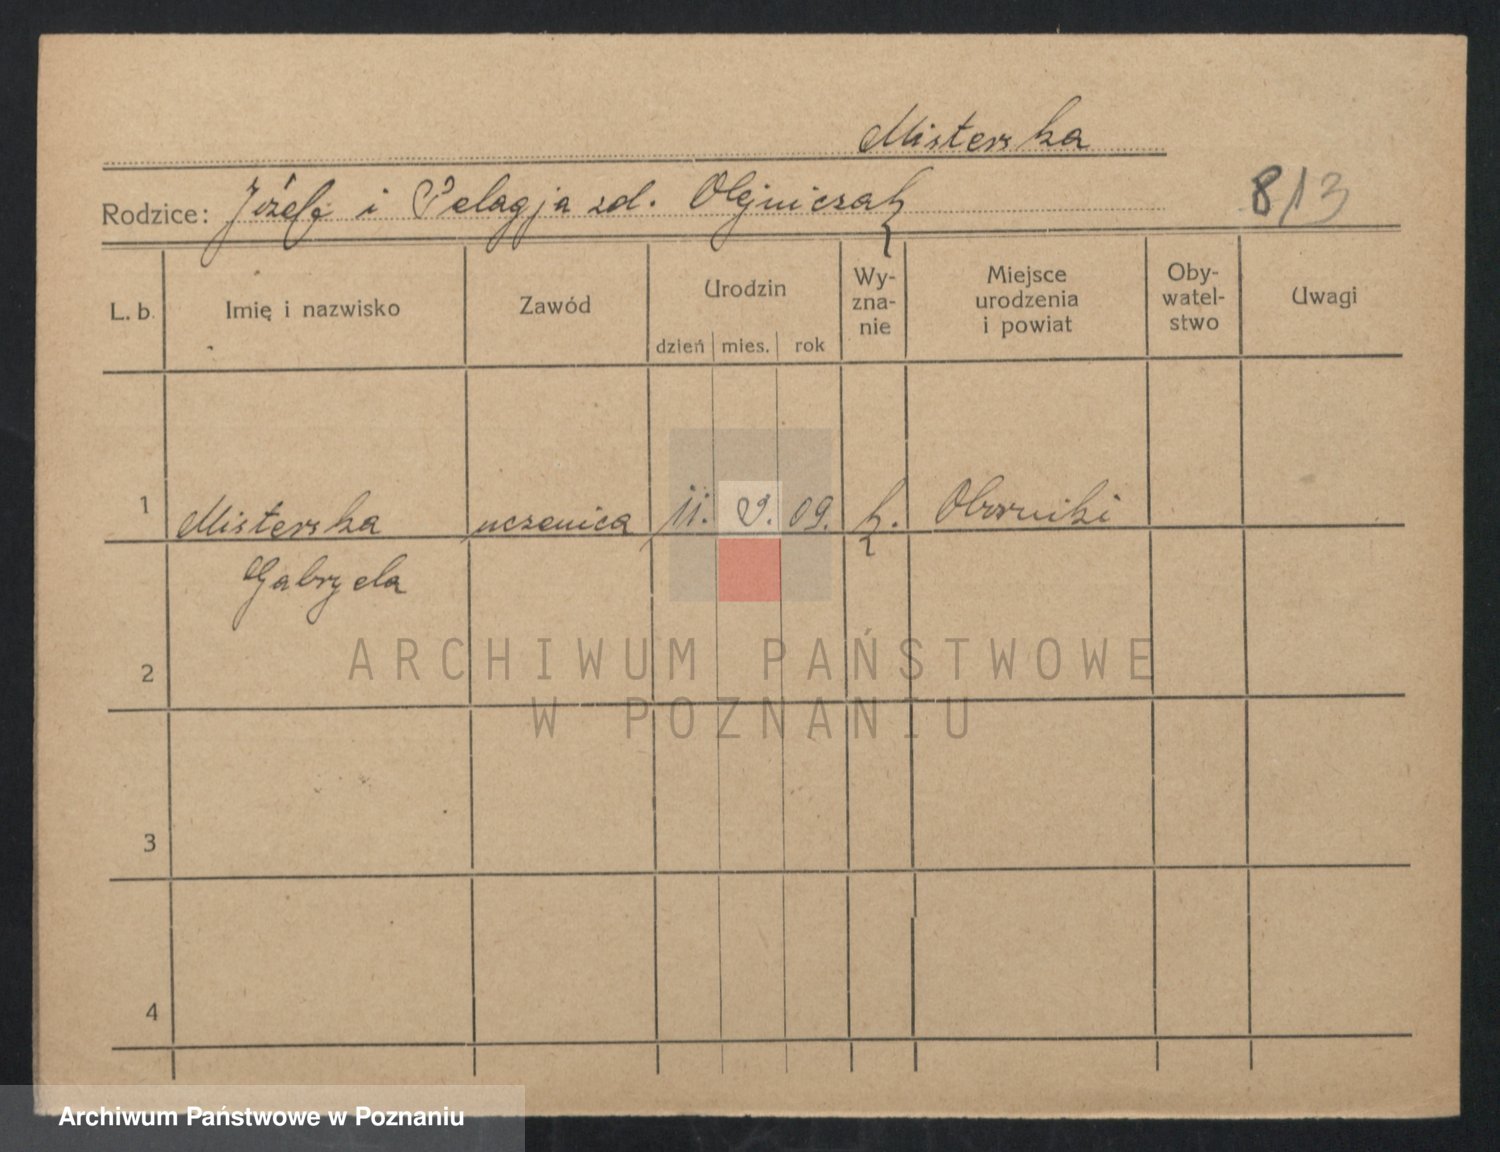 Misterska
Rodzice: Józef i Pelagja zd. Olejniczak
813
L. b. Imię i nazwisko Zawód Urodzin dzień mies. rok Wy-zna-nie Miejsce urodzenia i powiat Oby-watel-stwo Uwagi
1 Misterska uczenica 11. 9. 09. k. Oborniki
Gabryela
2
ARCHIWUM PAŃSTWOWE
W POZNANIU
3
4
Archiwum Państwowe w Poznaniu